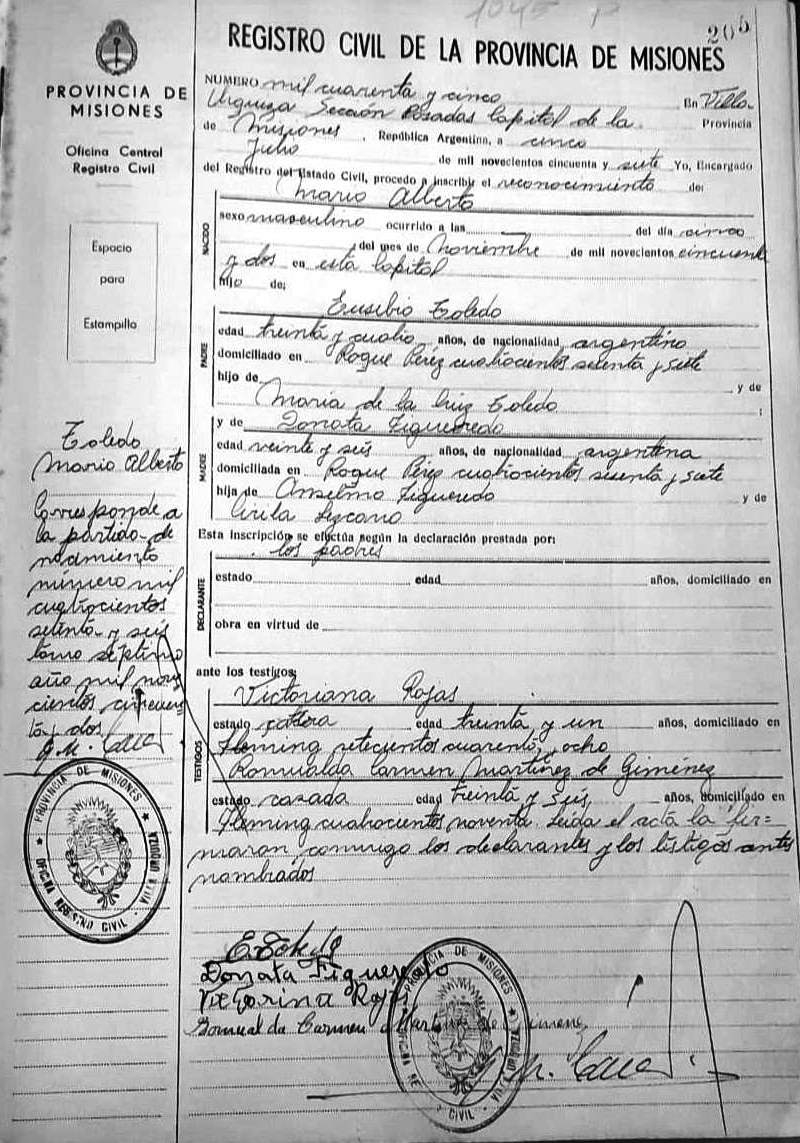 1045 P
205
REGISTRO CIVIL DE LA PROVINCIA DE MISIONES
PROVINCIA DE
MISIONES
Oficina Central
Registro Civil
Espacio
para
Estampilla
NUMERO mil cuarenta y cinco En Villa
Urquiza Sección Posadas Capital de la Provincia
de Misiones, República Argentina, a cinco
Julio de mil novecientos cincuenta y siete Yo, Encargado
del Registro del Estado Civil, procedo a inscribir el reconocimiento de:
Mario Alberto
NACIDO
sexo masculino ocurrido a las — del día cinco
del mes de Noviembre de mil novecientos cincuent
y dos en esta Capital
hijo de:
Eusebio Toledo
PADRE
edad treinta y cuatro años, de nacionalidad argentino
domiciliado en Roque Pérez cuatrocientos sesenta y siete
hijo de y de
Maria de la Cruz Toledo ;
MADRE
y de Donata Figueredo
edad veinte y seis años, de nacionalidad argentina
domiciliada en Roque Pérez cuatrocientos sesenta y siete
hija de Anselmo Figueredo y de
Cirila Lezcano
Esta inscripción se efectúa según la declaración prestada por:
los padres
DECLARANTE
estado edad años, domiciliado en
obra en virtud de
ante los testigos:
TESTIGOS
Victoriana Rojas
estado edad treinta y un años, domiciliado en
Fleming setecientos cuarenta y ocho
Romualda Carmen Martínez de Giménez
estado casada edad treinta y seis años, domiciliado en
Fleming cuatrocientos noventa. Leida el acta la fir=
maron conmigo los declarantes y los testigos antes
nombrados
Toledo
Mario Alberto
Corresponde a
la partida de
nacimiento
número mil
cuatrocientos
setenta y seis
tomo septimo
año mil nove
cientos cincuen
ta y dos
PROVINCIA DE MISIONES
OFICINA REGISTRO CIVIL - VILLA URQUIZA
E. Toledo
Donata Figueredo
Rojas
Romualda Carmen Martinez de Gimenez
PROVINCIA DE MISIONES
CIVIL - VILLA URQUIZA